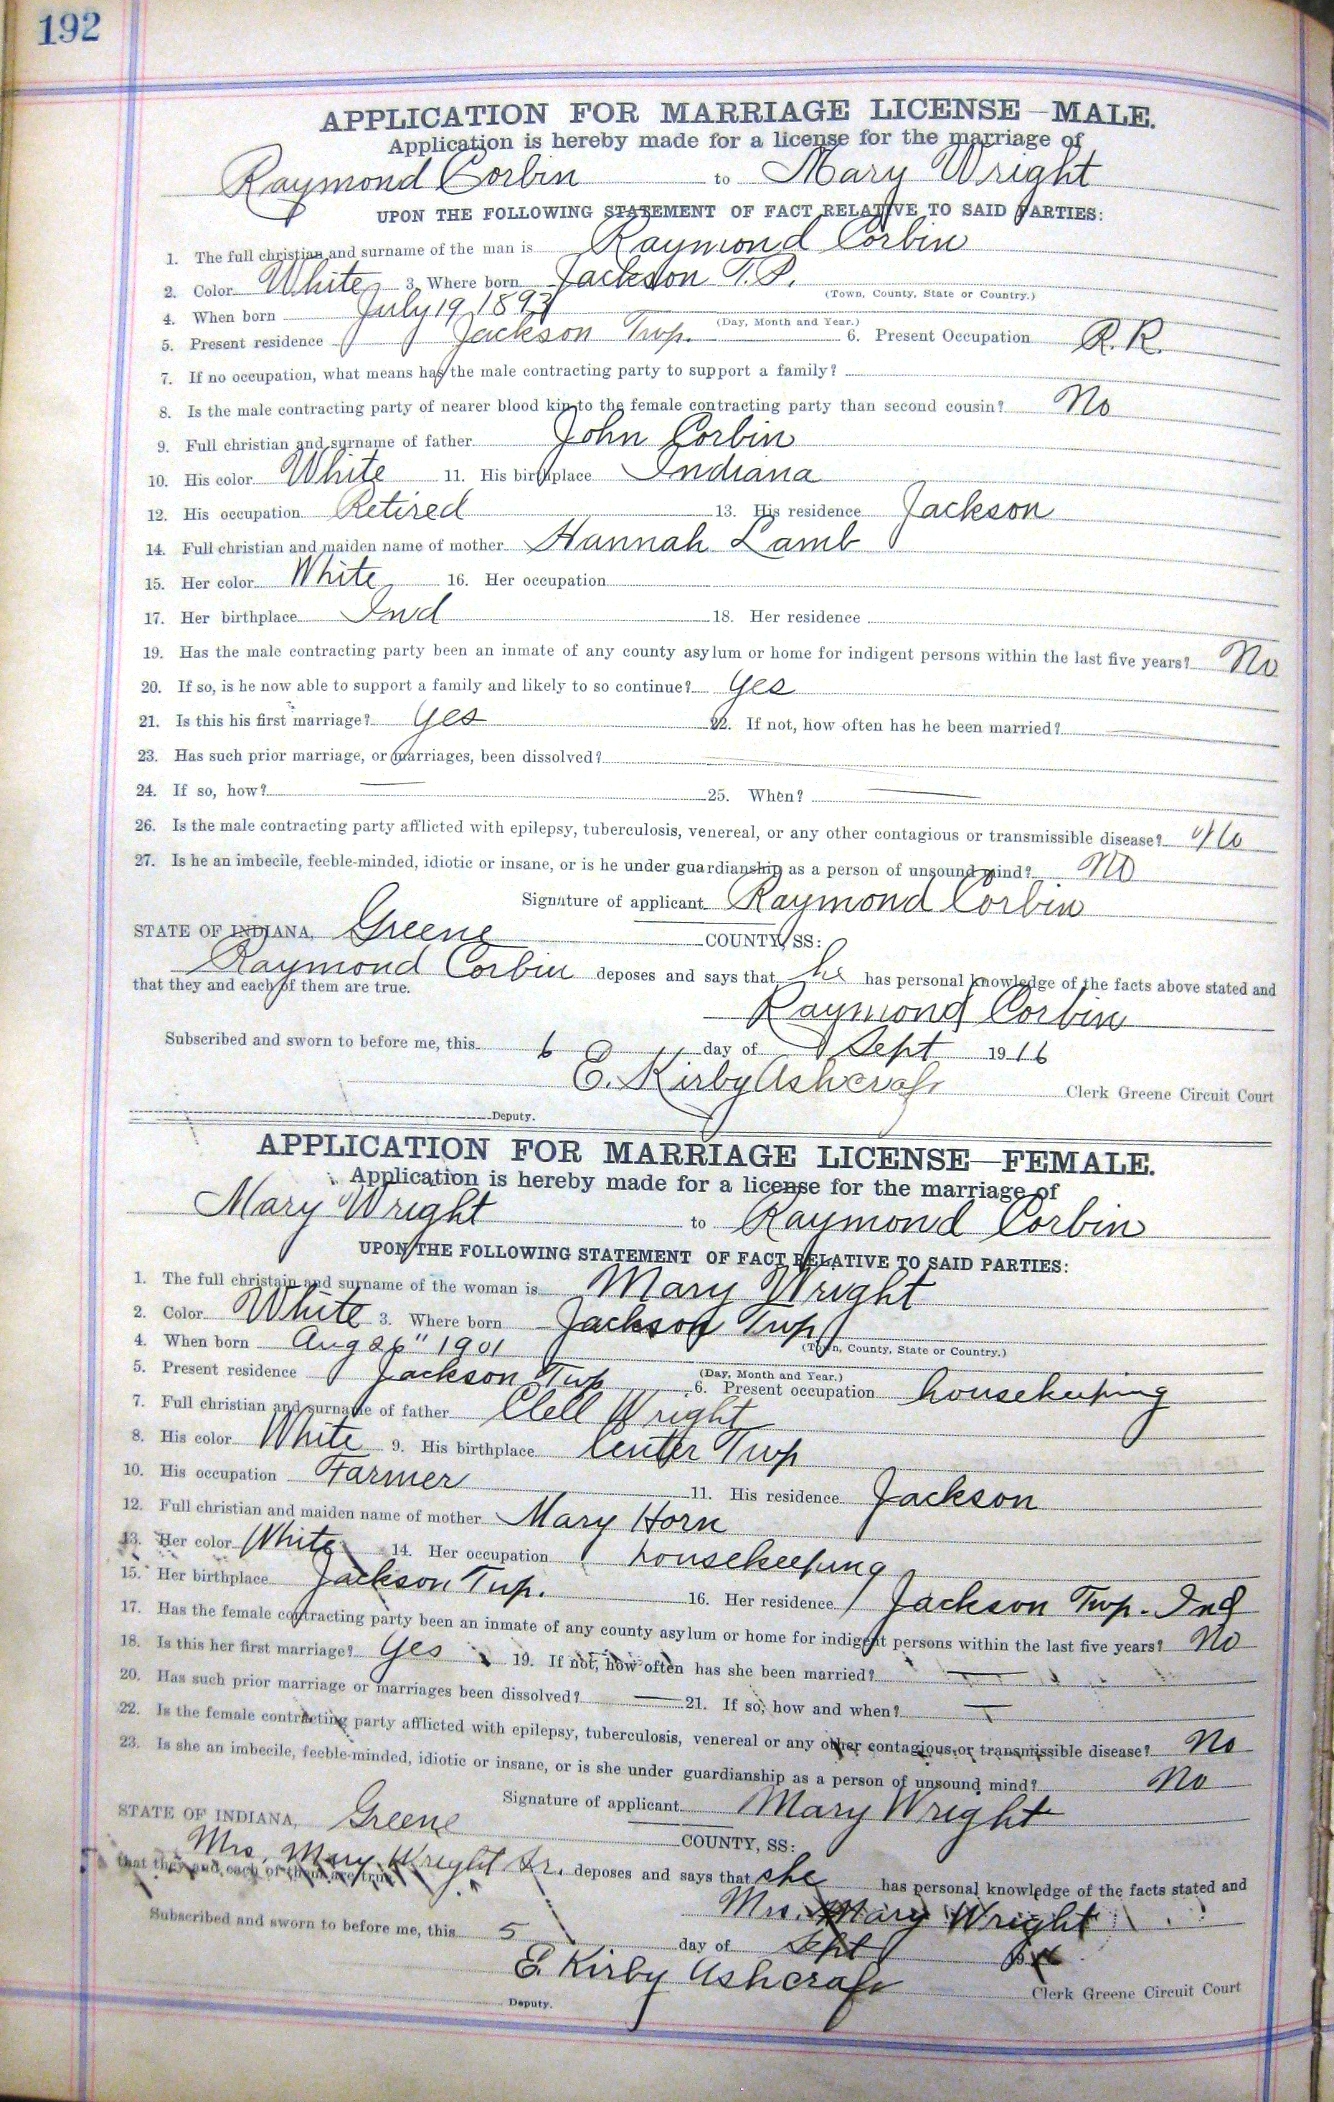 192
APPLICATION FOR MARRIAGE LICENSE—MALE.
Application is hereby made for a license for the marriage of
Raymond Corbin to Mary Wright
UPON THE FOLLOWING STATEMENT OF FACT RELATIVE TO SAID PARTIES:
1. The full christian and surname of the man is Raymond Corbin
2. Color White 3. Where born Jackson T.P.
(Town, County, State or Country.)
4. When born July 19, 1893
(Day, Month and Year.)
5. Present residence Jackson Twp. 6. Present Occupation R. R.
7. If no occupation, what means has the male contracting party to support a family?
8. Is the male contracting party of nearer blood kin to the female contracting party than second cousin? No
9. Full christian and surname of father John Corbin
10. His color White 11. His birthplace Indiana
12. His occupation Retired 13. His residence Jackson
14. Full christian and maiden name of mother Hannah Lamb
15. Her color White 16. Her occupation
17. Her birthplace Ind 18. Her residence
19. Has the male contracting party been an inmate of any county asylum or home for indigent persons within the last five years? No
20. If so, is he now able to support a family and likely to so continue? yes
21. Is this his first marriage? yes 22. If not, how often has he been married?
23. Has such prior marriage, or marriages, been dissolved?
24. If so, how? — 25. When? —
26. Is the male contracting party afflicted with epilepsy, tuberculosis, venereal, or any other contagious or transmissible disease? No
27. Is he an imbecile, feeble-minded, idiotic or insane, or is he under guardianship as a person of unsound mind? No
Signature of applicant Raymond Corbin
STATE OF INDIANA, Greene COUNTY, SS:
Raymond Corbin deposes and says that he has personal knowledge of the facts above stated and
that they and each of them are true.
Raymond Corbin
Subscribed and sworn to before me, this 6 day of Sept 1916
E. Kirby Ashcraft Clerk Greene Circuit Court
Deputy.
APPLICATION FOR MARRIAGE LICENSE—FEMALE.
Application is hereby made for a license for the marriage of
Mary Wright to Raymond Corbin
UPON THE FOLLOWING STATEMENT OF FACT RELATIVE TO SAID PARTIES:
1. The full christain and surname of the woman is Mary Wright
2. Color White 3. Where born Jackson Twp
(Town, County, State or Country.)
4. When born Aug 26" 1901
(Day, Month and Year.)
5. Present residence Jackson Twp 6. Present occupation housekeeping
7. Full christian and surname of father Clell Wright
8. His color White 9. His birthplace Center Twp
10. His occupation Farmer 11. His residence Jackson
12. Full christian and maiden name of mother Mary Horn
13. Her color White 14. Her occupation housekeeping
15. Her birthplace Jackson Twp. 16. Her residence Jackson Twp. Ind
17. Has the female contracting party been an inmate of any county asylum or home for indigent persons within the last five years? No
18. Is this her first marriage? yes 19. If not, how often has she been married? —
20. Has such prior marriage or marriages been dissolved? — 21. If so, how and when? —
22. Is the female contracting party afflicted with epilepsy, tuberculosis, venereal or any other contagious or transmissible disease? No
23. Is she an imbecile, feeble-minded, idiotic or insane, or is she under guardianship as a person of unsound mind? No
Signature of applicant Mary Wright
STATE OF INDIANA, Greene COUNTY, SS:
Mrs. Mary Wright Sr. deposes and says that she has personal knowledge of the facts stated and
that they and each of them are true.
Mrs. Mary Wright
Subscribed and sworn to before me, this 5 day of Sept 1916
E. Kirby Ashcraft Clerk Greene Circuit Court
Deputy.